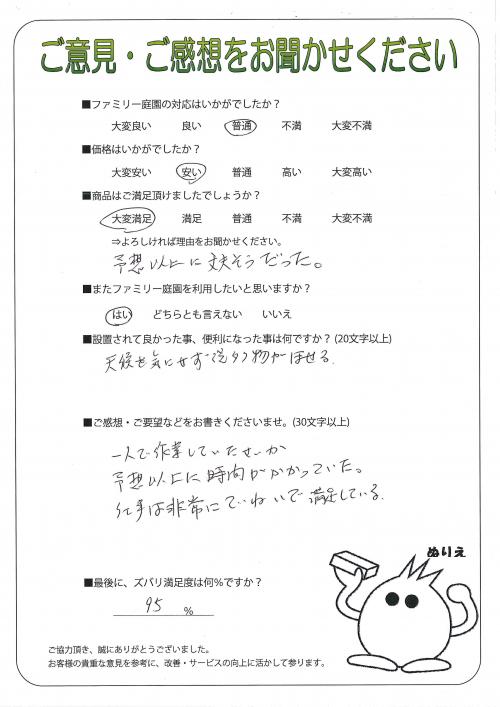 ご意見・ご感想をお聞かせください
■ファミリー庭園の対応はいかがでしたか？
大変良い 良い 普通 不満 大変不満
■価格はいかがでしたか？
大変安い 安い 普通 高い 大変高い
■商品はご満足頂けましたでしょうか？
大変満足 満足 普通 不満 大変不満
⇒よろしければ理由をお聞かせください。
予想以上に丈夫そうだった。
■またファミリー庭園を利用したいと思いますか？
はい どちらとも言えない いいえ
■設置されて良かった事、便利になった事は何ですか？(20文字以上)
天候を気にせず洗タク物がほせる.
■ご感想・ご要望などをお書きくださいませ。(30文字以上)
一人で作業していたせいか
予想以上に時間がかかっていた。
仕事は非常にていねいで満足している.
ぬりえ
■最後に、ズバリ満足度は何％ですか？
95 %
ご協力頂き、誠にありがとうございました。
お客様の貴重な意見を参考に、改善・サービスの向上に活かして参ります。